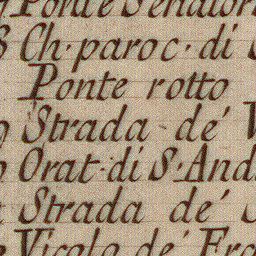 Ponte Senator
Ch. paroc. di
Ponte rotto
Strada de'
Orat. di S. And
Strada de'
Vicolo de' Fra